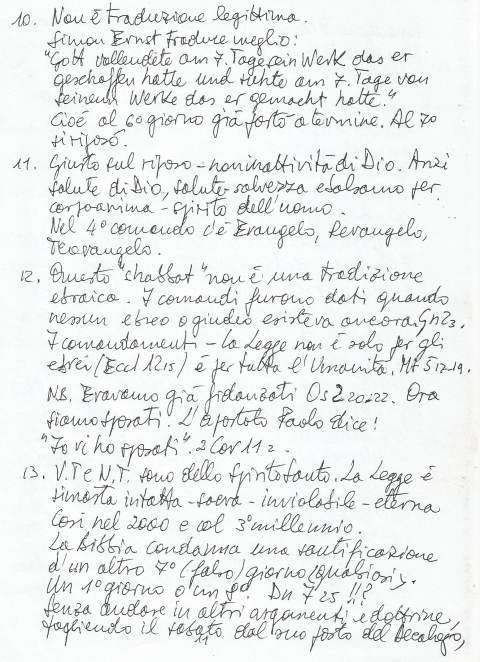 10. Non è traduzione legittima.
Simon Ernst traduce meglio:
"Gott vollendete am 7. Tage sein Werk das er
geschaffen hatte und ruhte am 7. Tage von
seinem Werke das er gemacht hatte."
Cioè al 6o giorno già portò a termine. Al 7o
si riposò.
11. Giusto sul riposo - non inattività di Dio. Anzi
salute di Dio, salute-salvezza e balsamo per
corpo-anima-spirito dell'uomo.
Nel 4° comando c'è Evangelo, Pervangelo,
12. Questo "shabbat" non è una tradizione
ebraica. I comandi furono dati quando
nessun ebreo o giudeo esisteva ancora. Gn 2 3.
I comandamenti - la Legge non è solo per gli
ebrei (Eccl 12 13) è per tutta l'Umanità. Mt 5 17-19.
NB. Eravamo già fidanzati Os 2 20-22. Ora
siamo sposati. L'apostolo Paolo dice!
"Io vi ho sposati". 2 Cor 11 2.
13. V.T e N.T. sono dello Spirito Santo. La Legge è
rimasta intatta - sacra - inviolabile - eterna
Così nel 2000 e col 3° millennio.
La Bibbia condanna una santificazione
d'un altro 7° (falso) giorno (qualsiasi).
Un 1° giorno o un 8°! Dn 7 25 !!?
Senza andare in altri argomenti e dottrine,
togliendo il sabato dal suo posto del Decalogo,
11